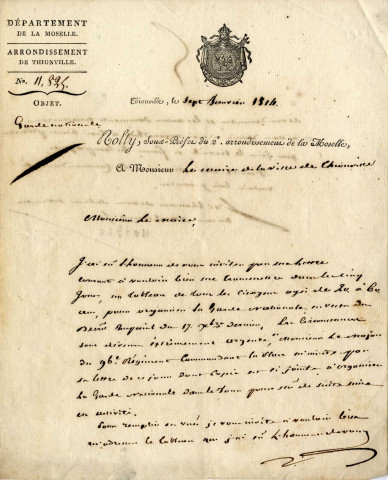 DÉPARTEMENT
DE LA MOSELLE.
ARRONDISSEMENT
DE THIONVILLE.
No.
OBJET.
Garde nationale
Thionville, le sept Janvier 1814
Rolly, Sous-Préfet du 2e. arrondissement de la Moselle,
A Monsieur Le maire de la ville de Thionville
Monsieur Le maire,
J'ai eu l'honneur de vous inviter par ma lettre
à vouloir bien me transmettre dans les cinq
Jours, un tableau de tous les citoyens agés de 20 à 60
ans, pour organiser la Garde Nationale, en vertu du
Décret Impérial du 17 Xbre dernier. Les Circonstances
sont devenues extrêmement urgentes, Monsieur Le major
du 96e Régiment Commandant la place m'invite par
sa lettre de ce jour dont Copie est ci jointe à organiser
La Garde Nationale dans le jour pour de suite mise
en activité.
Pour remplir ses vues je vous invite à vouloir bien
m'adresser le tableau que j'ai eu l'honneur de vous